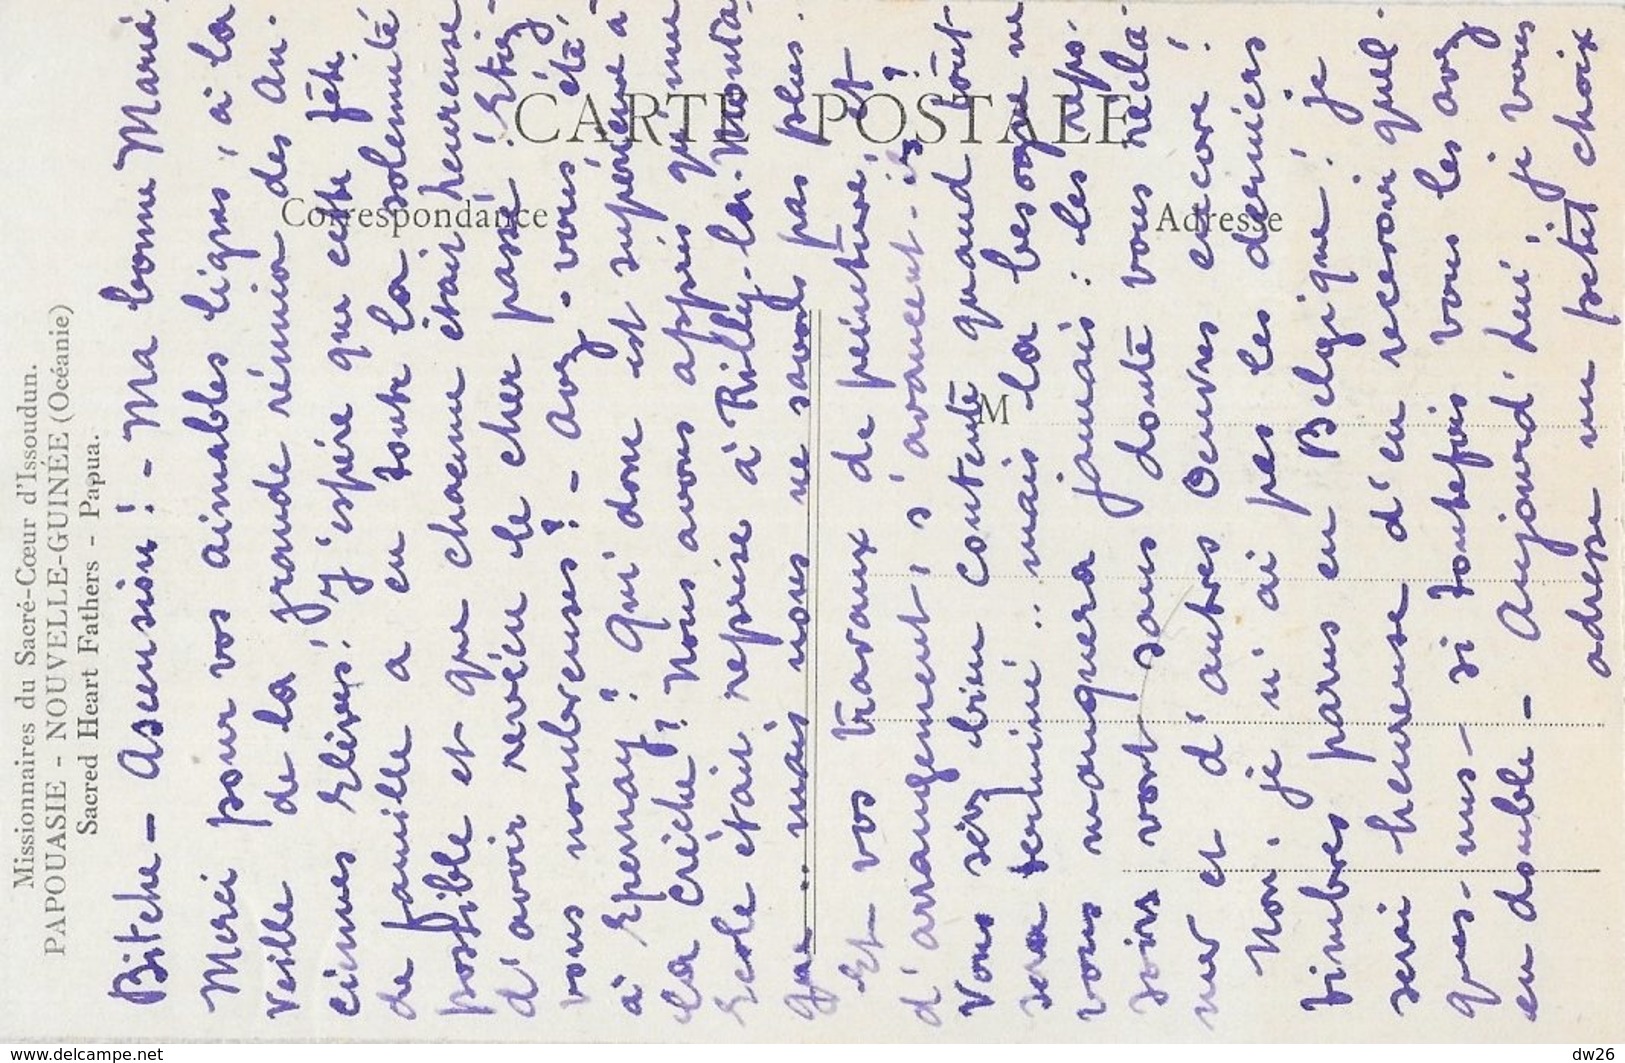 Missionnaires du Sacré-Cœur d'Issoudun.
PAPOUASIE - NOUVELLE-GUINÉE (Océanie)
Sacred Heart Fathers - Papua.
CARTE POSTALE
Correspondance
Adresse
M
Bitche - Ascension! - Ma bonne Maria,
Merci pour vos aimables lignes, à la
veille de la grande réunion des An-
ciennes Elèves! J'espère que cette fête
de famille a eu toute la solennité
possible et que chacune était heureuse
d'avoir revécu le cher passé! Etiez
vous nombreuses? - Avez-vous été
à Epernay? Qui donc est supérieure à
la Crèche? Nous avons appris qu'une
Ecole était reprise à Rilly-la-Monta-
gne.. mais nous ne savons pas plus.
Et vos travaux de peinture, et
d'arrangement, s'avancent-ils?
Vous serez bien contente quand tout
sera terminé.. mais la besogne ne
vous manquera jamais: les repo-
soirs vont sans doute vous récla-
mer et d'autres Oeuvres encore!
Non, je n'ai pas les derniers
timbres parus en Belgique! je
serai heureuse d'en recevoir quel-
ques-uns - si toutefois vous les avez
en double - Aujourd'hui, je vous
adresse un petit choix
www.delcampe.net
dw26